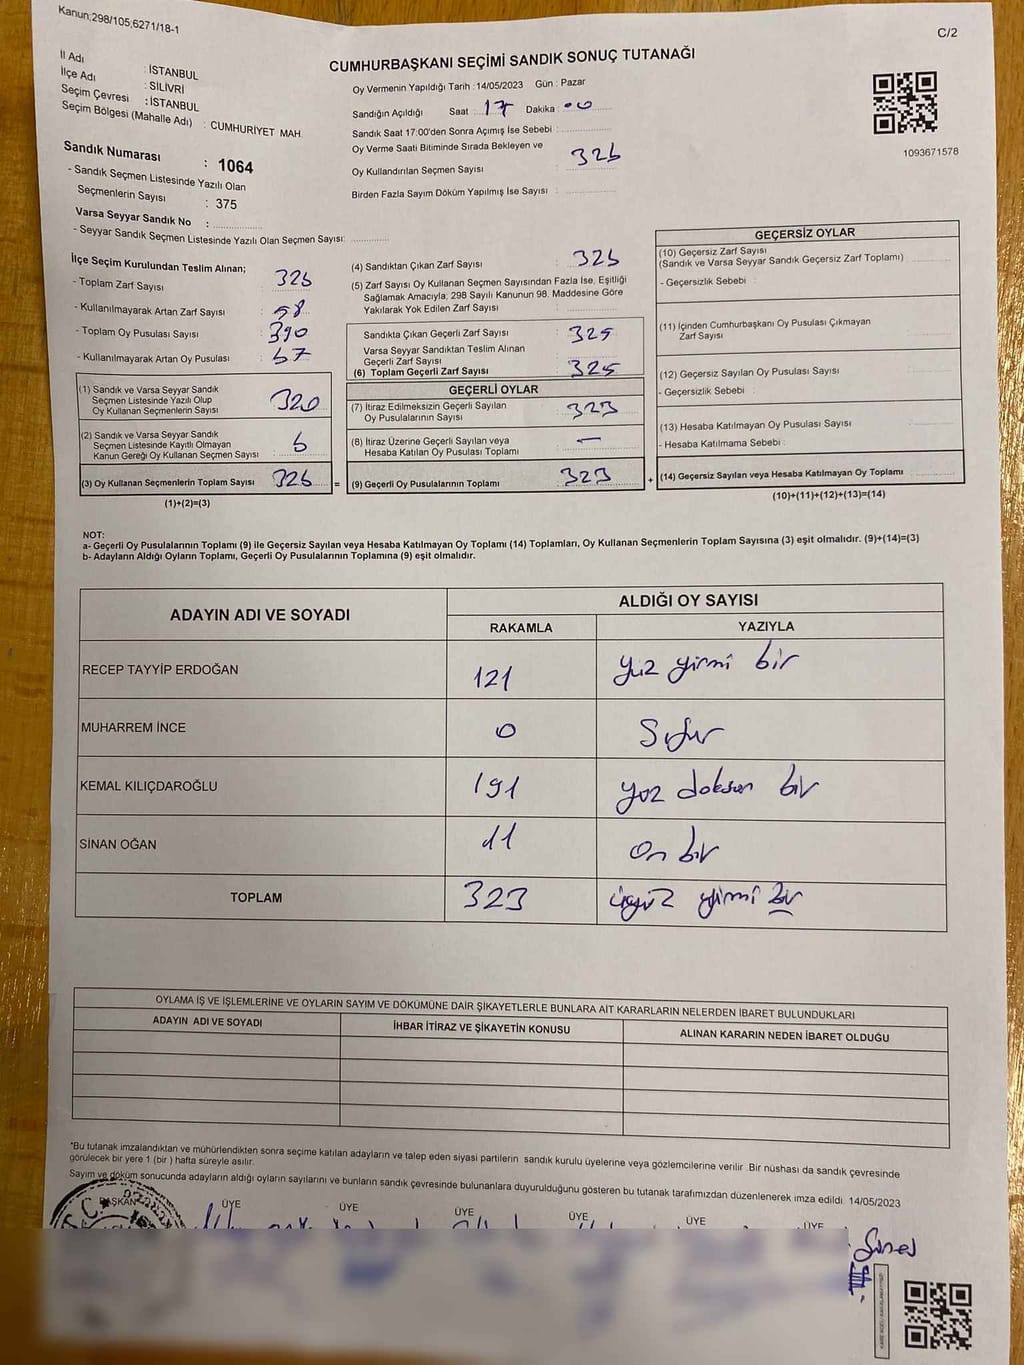 Kanun;298/105,6271/18-1
C/2
CUMHURBAŞKANI SEÇİMİ SANDIK SONUÇ TUTANAĞI
İl Adı : İSTANBUL
İlçe Adı : SİLİVRİ
Seçim Çevresi : İSTANBUL
Seçim Bölgesi (Mahalle Adı) : CUMHURİYET MAH.
Sandık Numarası : 1064
- Sandık Seçmen Listesinde Yazılı Olan
Seçmenlerin Sayısı : 375
Varsa Seyyar Sandık No :
- Seyyar Sandık Seçmen Listesinde Yazılı Olan Seçmen Sayısı:
Oy Vermenin Yapıldığı Tarih : 14/05/2023 Gün : Pazar
Sandığın Açıldığı Saat 17 Dakika 00
Sandık Saat 17:00'den Sonra Açımış İse Sebebi :
Oy Verme Saati Bitiminde Sırada Bekleyen ve
Oy Kullandırılan Seçmen Sayısı : 326
Birden Fazla Sayım Döküm Yapılmış İse Sayısı :
1093671578
İlçe Seçim Kurulundan Teslim Alınan;
- Toplam Zarf Sayısı : 326
- Kullanılmayarak Artan Zarf Sayısı : 58
- Toplam Oy Pusulası Sayısı : 390
- Kullanılmayarak Artan Oy Pusulası : 67
(1) Sandık ve Varsa Seyyar Sandık
Seçmen Listesinde Yazılı Olup
Oy Kullanan Seçmenlerin Sayısı : 320
(2) Sandık ve Varsa Seyyar Sandık
Seçmen Listesinde Kayıtlı Olmayan
Kanun Gereği Oy Kullanan Seçmen Sayısı : 6
(3) Oy Kullanan Seçmenlerin Toplam Sayısı : 326 =
(1)+(2)=(3)
(4) Sandıktan Çıkan Zarf Sayısı : 326
(5) Zarf Sayısı Oy Kullanan Seçmen Sayısından Fazla İse, Eşitliği
Sağlamak Amacıyla; 298 Sayılı Kanunun 98. Maddesine Göre
Yakılarak Yok Edilen Zarf Sayısı :
Sandıkta Çıkan Geçerli Zarf Sayısı : 325
Varsa Seyyar Sandıktan Teslim Alınan
Geçerli Zarf Sayısı :
(6) Toplam Geçerli Zarf Sayısı : 325
GEÇERLİ OYLAR
(7) İtiraz Edilmeksizin Geçerli Sayılan
Oy Pusulalarının Sayısı : 323
(8) İtiraz Üzerine Geçerli Sayılan veya
Hesaba Katılan Oy Pusulası Toplamı : —
(9) Geçerli Oy Pusulalarının Toplamı : 323 +
GEÇERSİZ OYLAR
(10) Geçersiz Zarf Sayısı
(Sandık ve Varsa Seyyar Sandık Geçersiz Zarf Toplamı) :
- Geçersizlik Sebebi :
(11) İçinden Cumhurbaşkanı Oy Pusulası Çıkmayan
Zarf Sayısı :
(12) Geçersiz Sayılan Oy Pusulası Sayısı :
- Geçersizlik Sebebi :
(13) Hesaba Katılmayan Oy Pusulası Sayısı :
- Hesaba Katılmama Sebebi :
(14) Geçersiz Sayılan veya Hesaba Katılmayan Oy Toplamı
(10)+(11)+(12)+(13)=(14)
NOT:
a- Geçerli Oy Pusulalarının Toplamı (9) ile Geçersiz Sayılan veya Hesaba Katılmayan Oy Toplamı (14) Toplamları, Oy Kullanan Seçmenlerin Toplam Sayısına (3) eşit olmalıdır. (9)+(14)=(3)
b- Adayların Aldığı Oyların Toplamı, Geçerli Oy Pusulalarının Toplamına (9) eşit olmalıdır.
ADAYIN ADI VE SOYADI
ALDIĞI OY SAYISI
RAKAMLA YAZIYLA
RECEP TAYYİP ERDOĞAN 121 yüz yirmi bir
MUHARREM İNCE 0 Sıfır
KEMAL KILIÇDAROĞLU 191 yüz doksan bir
SİNAN OĞAN 11 On bir
TOPLAM 323 üçyüz yirmi bir
OYLAMA İŞ VE İŞLEMLERİNE VE OYLARIN SAYIM VE DÖKÜMÜNE DAİR ŞİKAYETLERLE BUNLARA AİT KARARLARIN NELERDEN İBARET BULUNDUKLARI
ADAYIN ADI VE SOYADI İHBAR İTİRAZ VE ŞİKAYETİN KONUSU ALINAN KARARIN NEDEN İBARET OLDUĞU
*Bu tutanak imzalandıktan ve mühürlendikten sonra seçime katılan adayların ve talep eden siyasi partilerin sandık kurulu üyelerine veya gözlemcilerine verilir. Bir nüshası da sandık çevresinde
görülecek bir yere 1 (bir ) hafta süreyle asılır.
Sayım ve döküm sonucunda adayların aldığı oyların sayılarını ve bunların sandık çevresinde bulunanlara duyurulduğunu gösteren bu tutanak tarafımızdan düzenlenerek imza edildi. 14/05/2023
BAŞKAN ÜYE ÜYE ÜYE ÜYE ÜYE ÜYE
T.C.